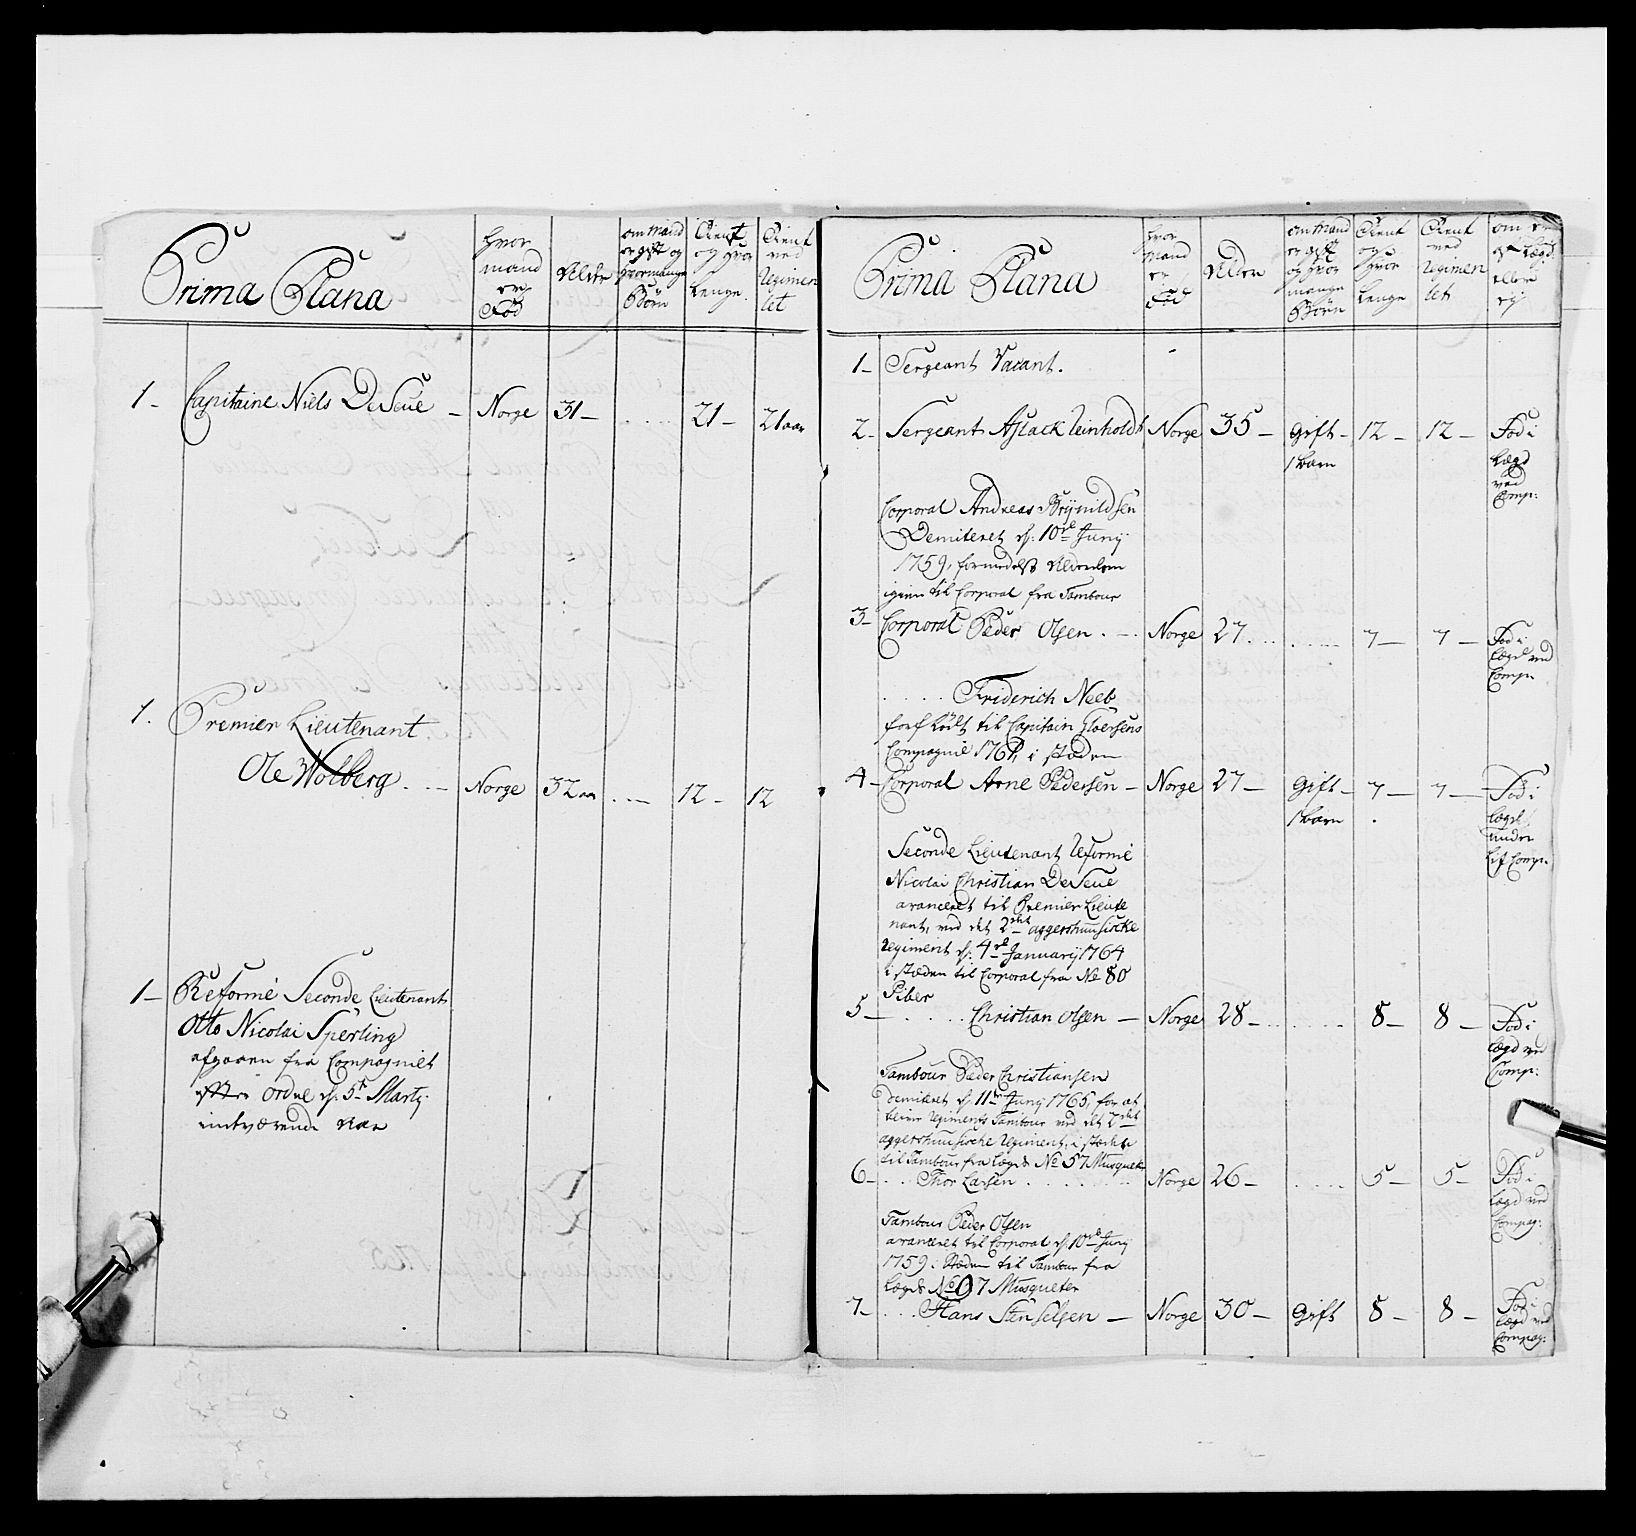 Prima Plana
Hvor mand er Fød
Alder
om Mand er gift og hvormange Børn
Tient og hvor Lenge.
Tient ved Regimentet
1- Capitaine Niels DeSeue - Norge 31- ..... 21- 21 aar
1. Premier Lieutenant
Ole Wolberg. - Norge 32 aar ..- 12- 12
1- Reformé Seconde Lieutenant
Otto Nicolai Sperling
afgaaen fra Compagniet
efter ordre d: 5te Marty
indværende Aar
Prima Plana
Hvor Mand er Fød
Alder
om Mand er gift og hvor mange Børn
Tient og hvor Lenge
Tient ved Regimentet
om er Lægd eller ey
1- Sergeant Vacant.
2- Sergeant Aslack Reinholdt Norge 35- Gift- 12- 12- Fød i
1 barn Lægd
ved
Comp:
Corporal Andreas Brynildsen
Demiteret d: 10de Juny
1759, formedelst Alderdom
igien til Corporal fra Tambour
3- Corporal Peder Olsen. - Norge 27.... .... 7- 7- Fød i
Lægd ved
Comp:
..... Friderich Neeb
forflödt til Capitain Gloersens
Compagnie 1761, i stæden
4- Corporal Arne Pedersen - Norge 27- Gift- 7- 7- Fød i
1 barn Lægd
under
Lif Comp:
Seconde Lieutenant Reformé
Nicolai Christian DeSeue
avanceret til Premier Lieute
nant, ved det 2det aggershuusiske
Regiment d: 4de January 1764
i stæden til Corporal fra No 80
Piber
5- ..... Christian Olsen - Norge 28-.. ..... 8- 8- Fød i
Lægd ved
Comp:
Tambour Peder Christiansen
Demiteret d: 11te Juny 1765, for at
blive Regiments Tambour ved det 2det
aggershuusiske Regiment, i stædet
til Tambour fra Lægds No 57 Musqueter
6- ... Thor Larsen ....... Norge 26- ..... 5- 5- Fød i
Lægd ved
Compag:
Tambour Peder Olsen
avanceret til Corporal d: 10de Juny
1759. Stæden til Tambour fra
Lægds No 07 Musqueter
7- ... Hans Stenselsen - Norge 30- Gift 8- 8- Fød i
Lægd ved
Compag: